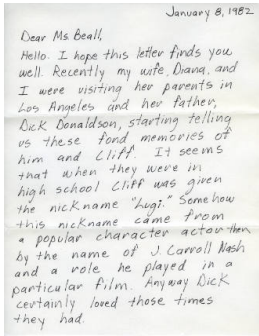 January 8, 1982
Dear Ms. Beall,
Hello. I hope this letter finds you
well. Recently my wife, Diana, and
I were visiting her parents in
Los Angeles and her father,
Dick Donaldson, starting telling
us these fond memories of
him and Cliff. It seems
that when they were in
high school Cliff was given
the nickname "Lugi." Somehow
this nickname came from
a popular character actor then
by the name of J. Carroll Nash
and a role he played in a
particular film. Anyway Dick
certainly loved those times
they had.